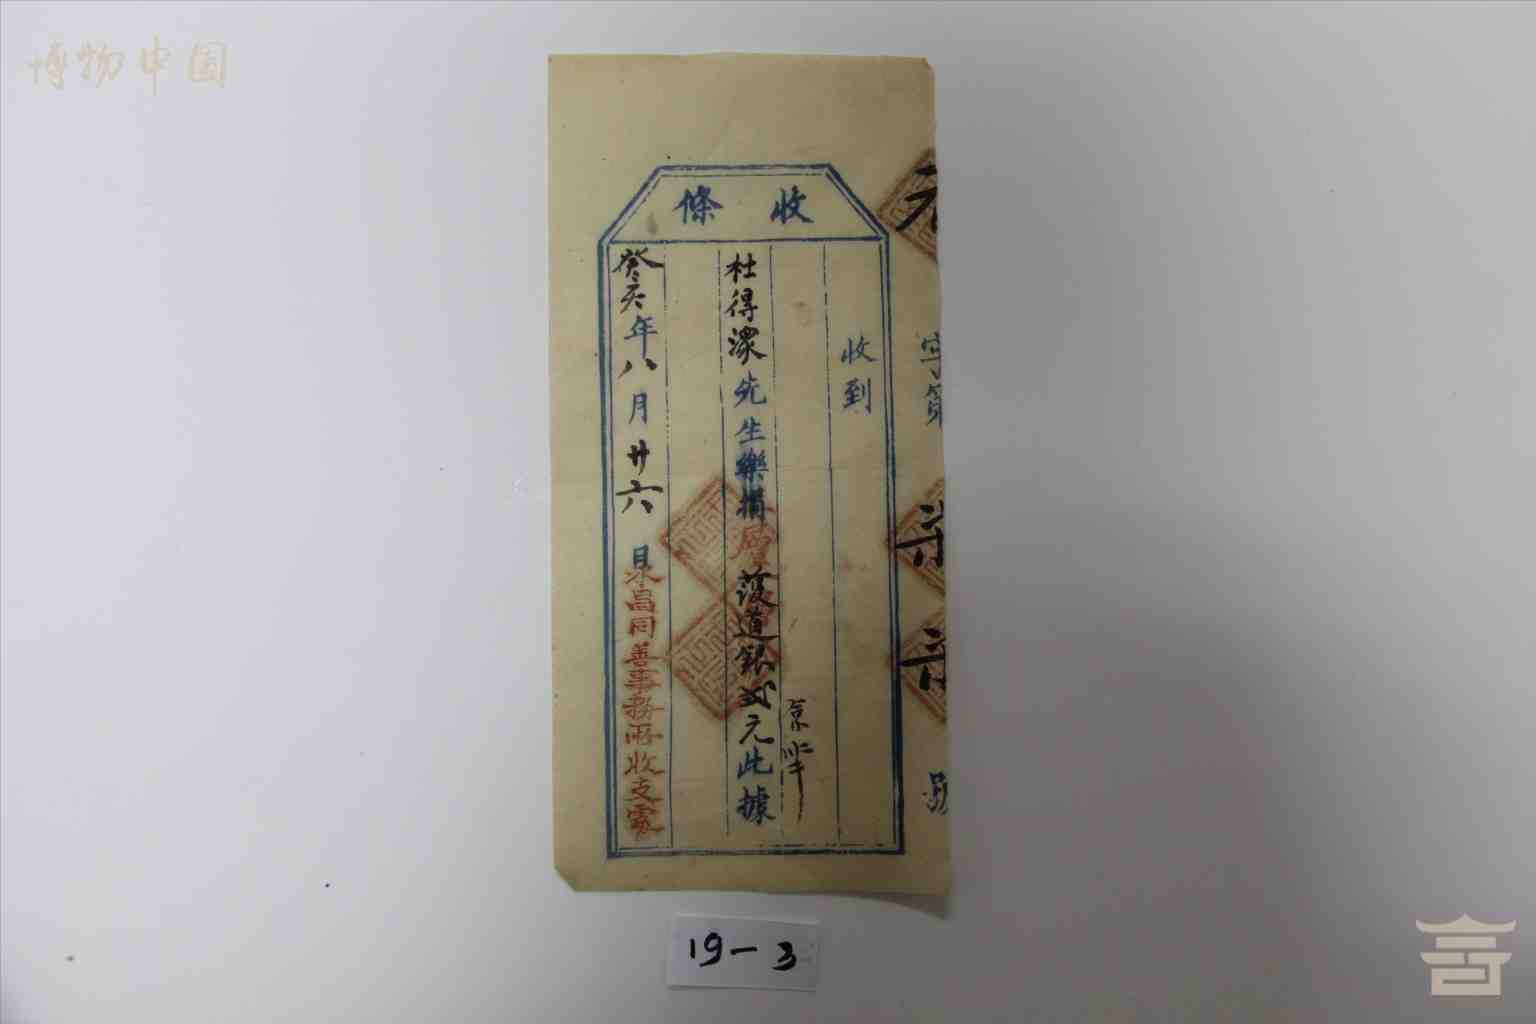 博物中国
收條
字第
號
收到
杜得濴先生樂捐層護道銀弍元此據
癸亥年八月廿六日永昌同善事務所收支處
19-3